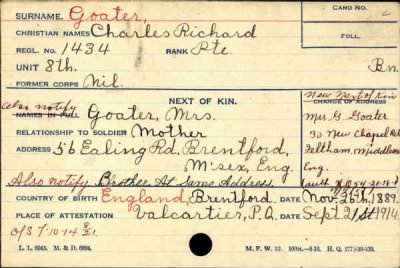 SURNAME. Goater, CARD No.
CHRISTIAN NAMES Charles Richard
FOLL.
REGL. No. 1434 RANK Pte.
UNIT 8th. Bn.
FORMER CORPS Nil.
Also notify NEXT OF KIN. New Next of Kin
NAMES IN FULL Goater, Mrs. CHANGE OF ADDRESS
RELATIONSHIP TO SOLDIER Mother Mrs G. Goater
ADDRESS 56 Ealing Rd, Brentford, 30 New Chapel Rd
M'sex, Eng. Feltham, Middlesex
Eng.
Also notify Brother At Same Address.
COUNTRY OF BIRTH England, Brentford. DATE Nov. 26th, 1889.
PLACE OF ATTESTATION Valcartier, P.Q. DATE Sept. 21st 1914
O/S 7-10-14
L. L. 6945. M. & D. 6904. M. F. W. 22.